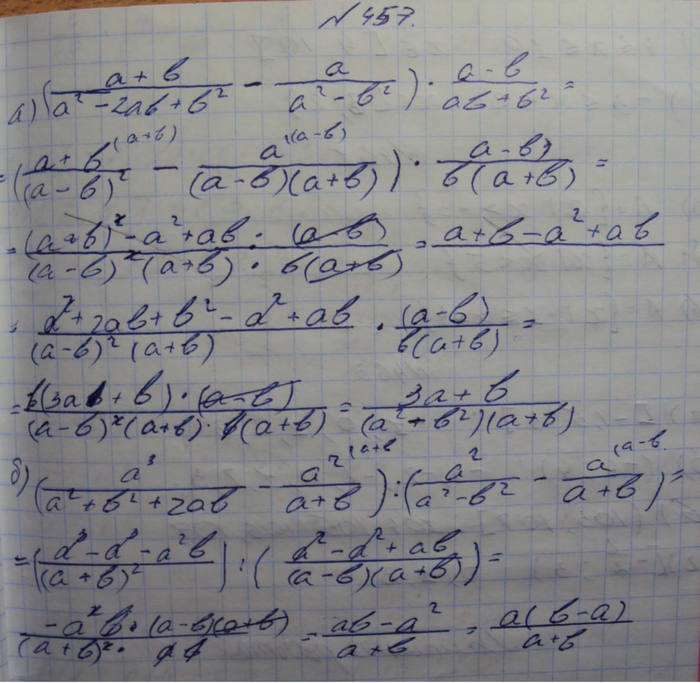 №457.
а) ( (a+b)/(a²-2ab+b²) - a/(a²-b²) ) · (a-b)/(ab+b²) =
= ( (a+b)^((a+b))/(a-b)² - a^((a-b))/((a-b)(a+b)) ) · (a-b)/(b(a+b)) =
= ((a+b)² - a² + ab · (a-b))/((a-b)²(a+b) · b(a+b)) = a+b-a²+ab
= (a²+2ab+b²-a²+ab)/((a-b)²(a+b)) · (a-b)/(b(a+b)) =
= (b(3a+b)·(a-b))/((a-b)²(a+b)·b(a+b)) = (3a+b)/((a²-b²)(a+b))
б) ( a³/(a²+b²+2ab) - a²^((a+b)/(a+b) ) : ( a²/(a²-b²) - a^((a-b)/(a+b) ) =
= ( (a³-a³-a²b)/(a+b)² ) : ( (a²-a²+ab)/((a-b)(a+b)) ) =
(-a²b·(a-b)(a+b))/((a+b)²· ab) = (ab-a²)/(a+b) = (a(b-a))/(a+b)